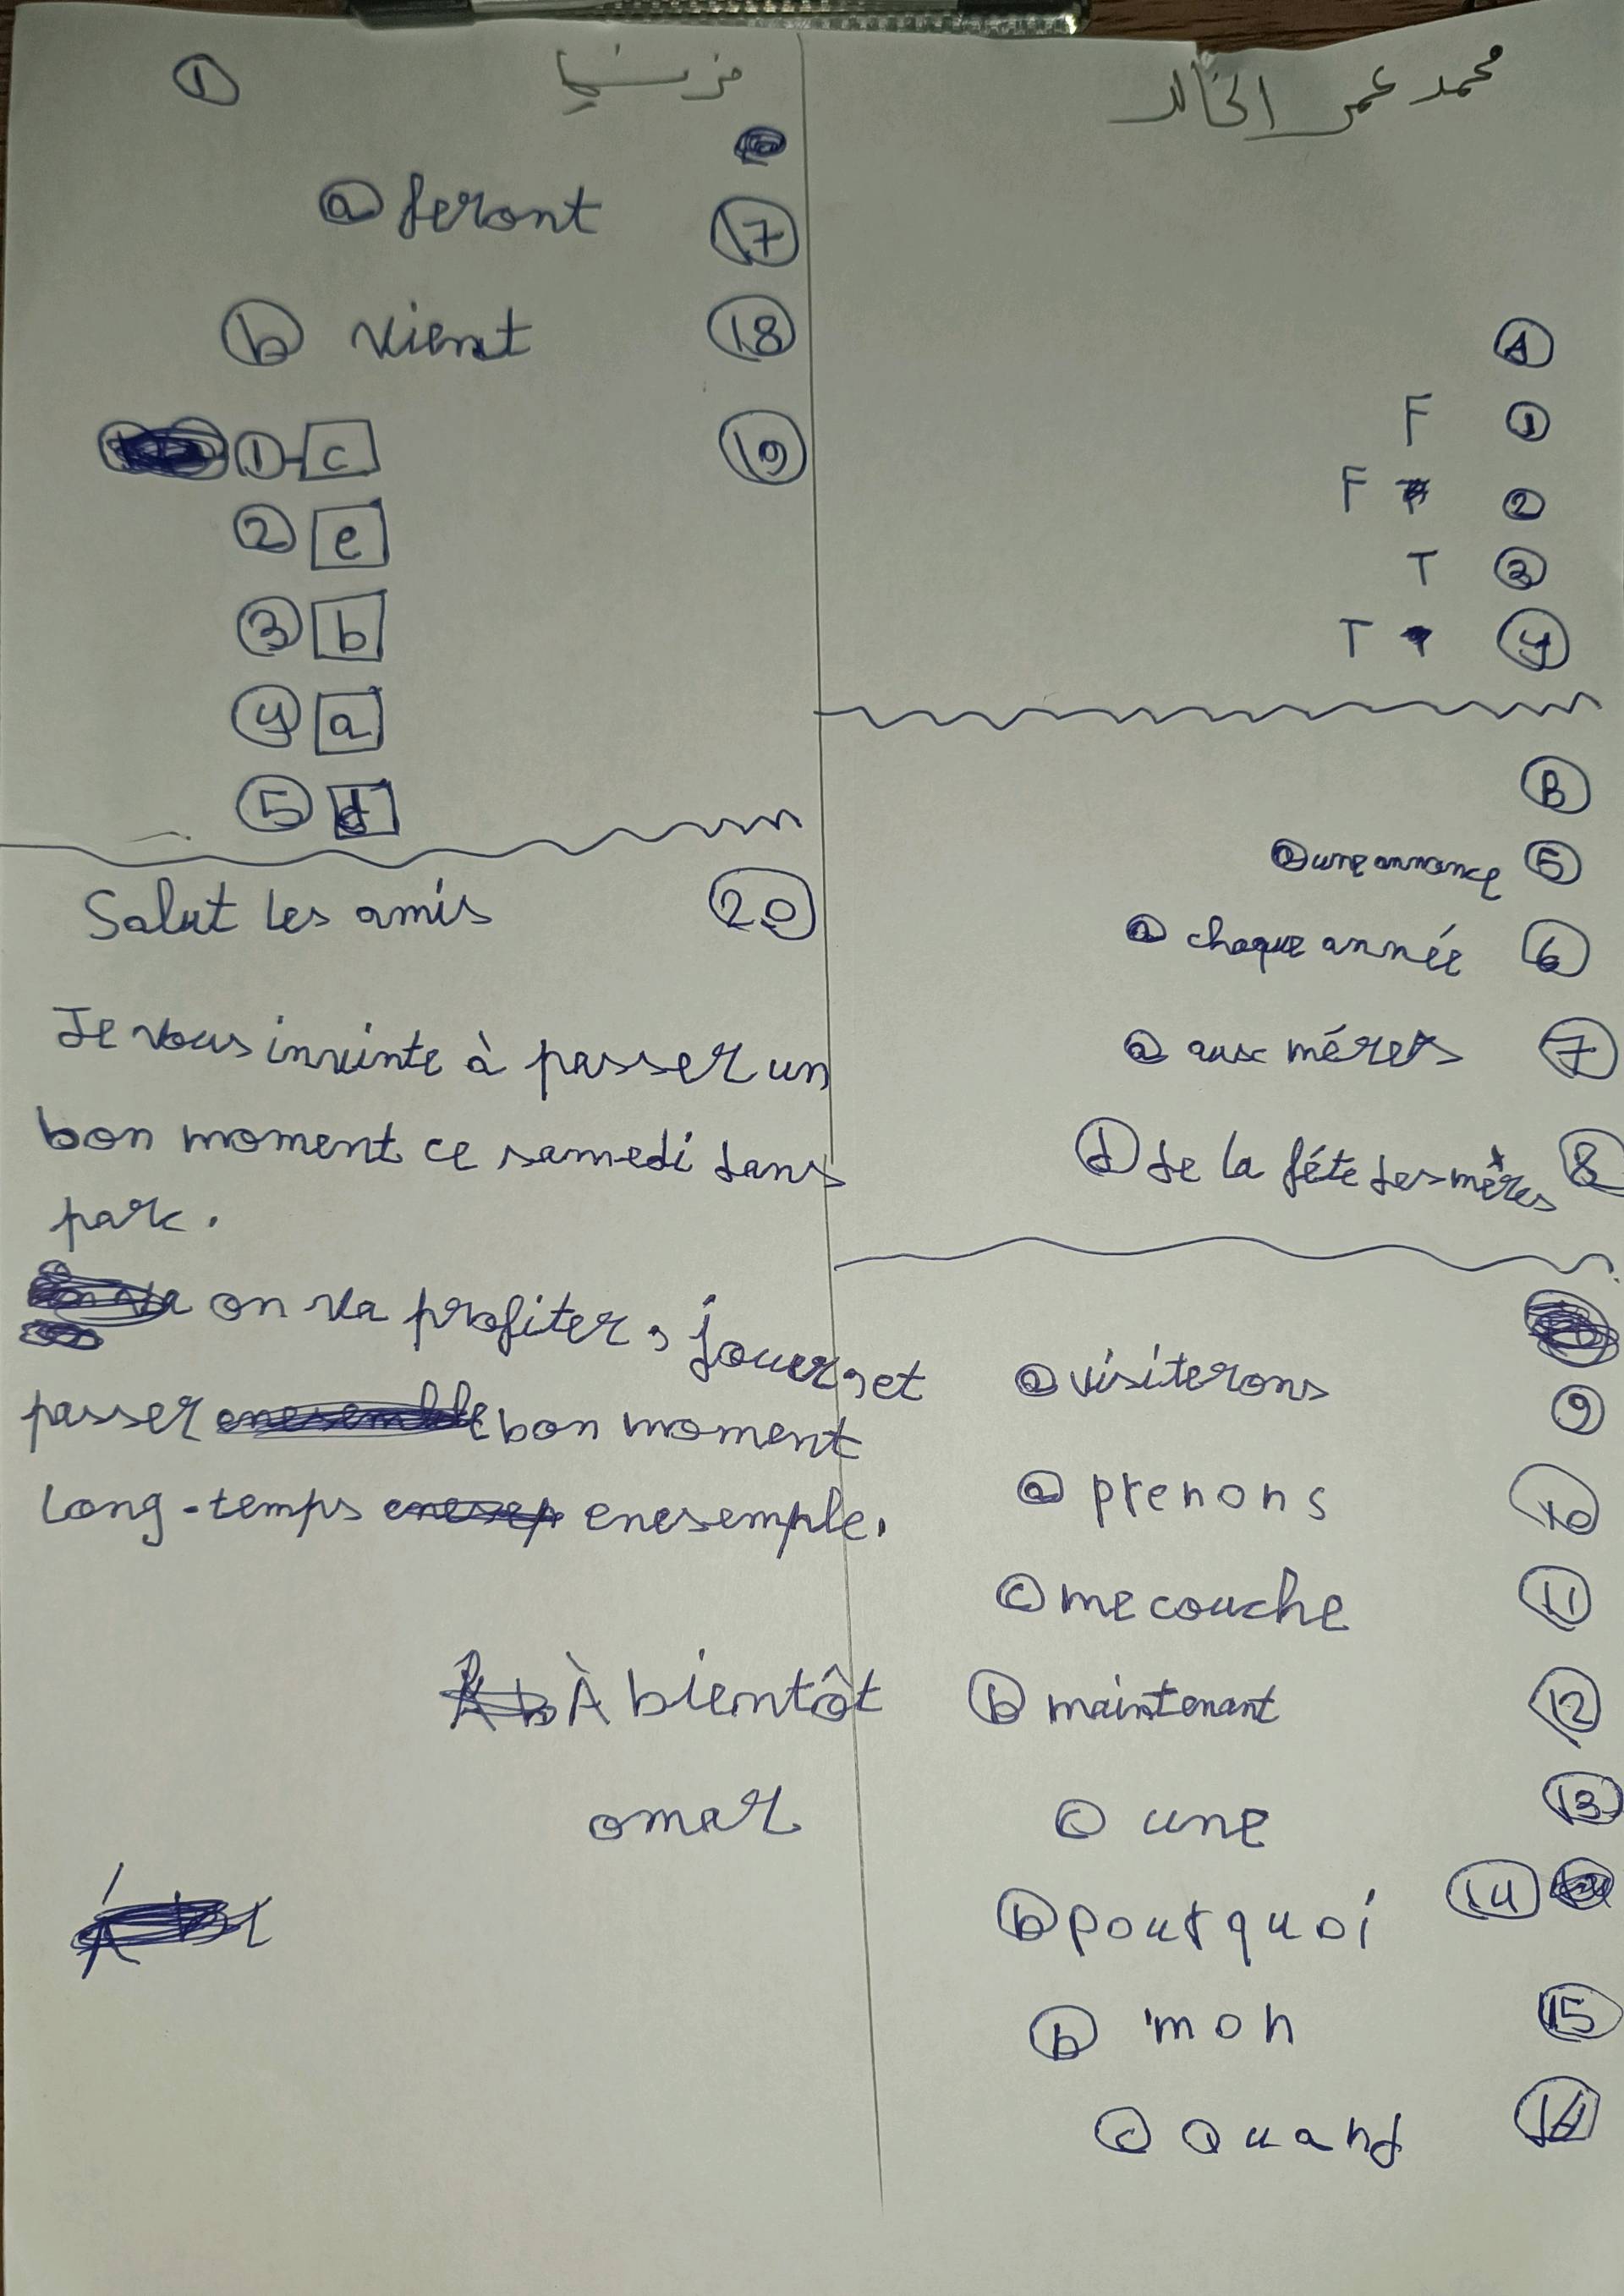 محمد عمر الخالد
A
1 F
2 F
3 T
4 T
B
5 a une annonce
6 a chaque année
7 a aux méres
8 d de la féte des mères
9 a visiterons
10 a prenons
11 c me couche
12 b maintenant
13 c une
14 b pourquoi
15 b mon
c Quand
1
a feront 17
b vient 18
19 1-c
2 e
3 b
4 a
5 d
20 Salut les amis
Je vous invinte à passer un
bon moment ce samedi dans
park.
on va profiter, jouer, et
passer bon moment
long-temps enesemple.
À bientôt
omar